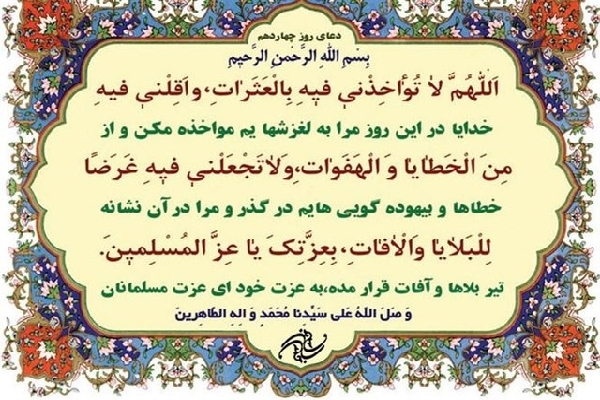 دعای روز چهاردهم
بِسْمِ اللهِ الرَّحْمنِ الرَّحیمِ
اَللّهُمَّ لا تُؤاخِذْنی فیهِ بِالْعَثَراتِ،واَقِلْنی فیهِ
خدایا در این روز مرا به لغزشها یم مواخذه مکن و از
مِنَ الْخَطایا وَ الْهَفَواتِ،وَلاتَجْعَلْنی فیهِ غَرَضًا
خطاها و بیهوده گویی هایم در گذر و مرا درآن نشانه
لِلْبَلایا وَالْافاتِ،بِعِزَّتِکَ یا عِزَّ المُسْلِمینَ.
تیر بلاها و آفات قرار مده،به عزت خود ای عزت مسلمانان
وَ صَلَ اللهُ عَلی سَیِّدنا مُحَمَدِ وَ الِهِ الطّاهِرینَ